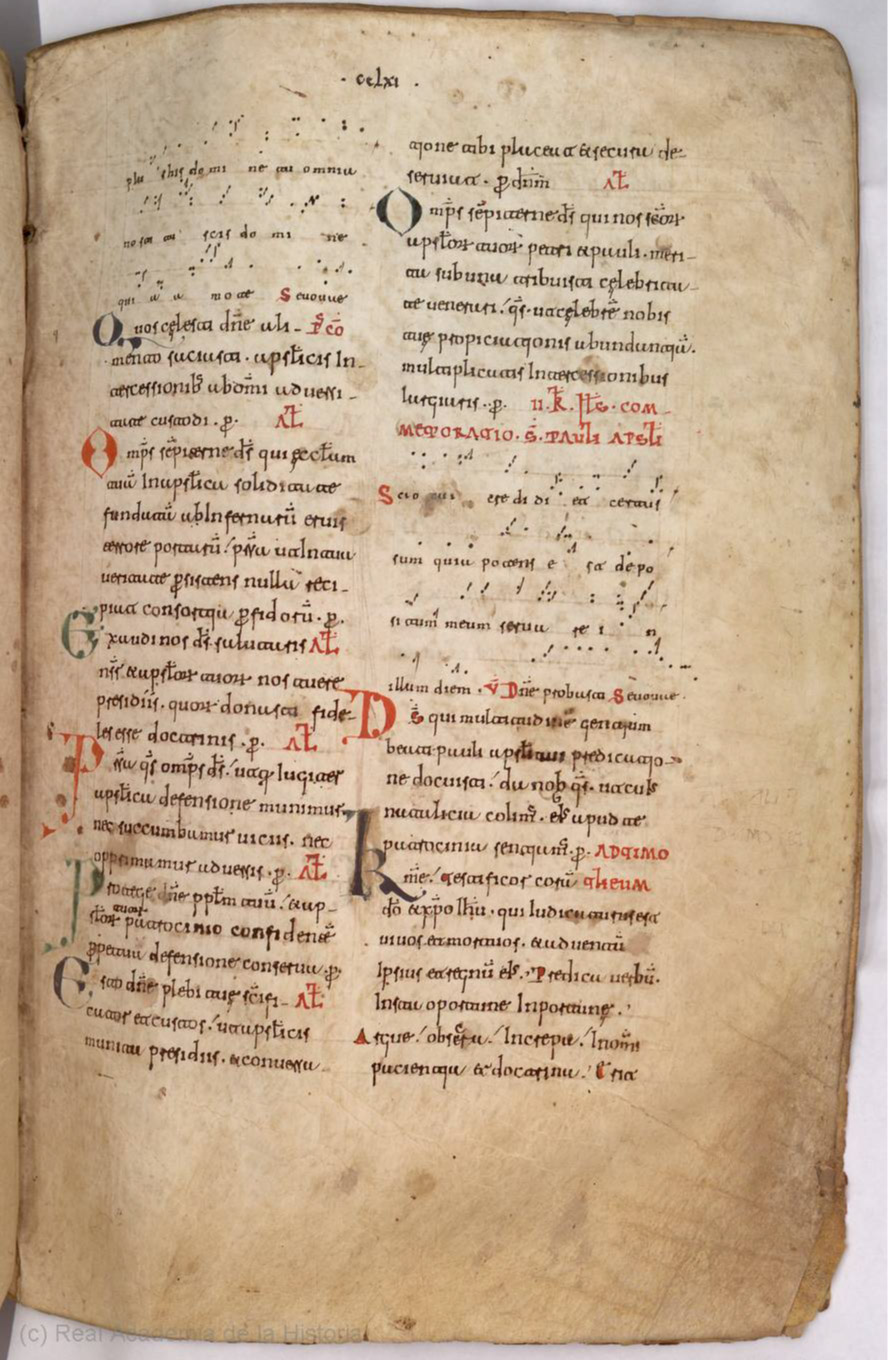 · cclxi ·
do mi ne tu omnia
nosti tu scis do mi ne
qui a a mo te Seuouae
Quos cęlesti dñe ali- P̃ cõ
mento saciasti. apsťlicis In-
tercessionib̃ ab omĩ aduersi-
tate custodi. p̱. Alt̃
Omp̃s sẽpiterne d̃s qui ęcclam
tuã In apsťlica
fundatã ab Infernarũ eruis
terrore portarũ/ p̃sta ut In tua
ueritate p̱sistens nullã reci-
piat consortia p̱fidorũ. p̱.
Exaudi nos d̃s salutaris Alt̃
ñs̃r &apsťlor tuor nos tuere
presidiis. quor donasti fide-
les esse doctrinis. p̱. Alt̃
P̃sta q̃s omp̃s d̃s/ utq
apsťlica defensione munimus
nec succumbamus uiciis. nec
opprimamus aduersis. p̱. Alt̃
Protege dñe pplm tuũ/ &ap-
sťlor tuor patrocinio confidentẽ
p̱petua defensione conserua. p̱.
Esto dñe plebi tuę sc̃ifi- Alt̃
cator et custos/ ut apsťlicis
munita presidiis. &conuersa
cione tibi placeat &secura de-
seruiat. p̱ dñm Alt̃
Omp̃s sẽpiterne d̃s qui nos sc̃or
apsťlor tuor petri &pauli. meri-
ta sub una tribuisti cęlebrita-
te uenerari/ q̃s. ut cęlebrẽ nobis
tuę propiciacionis abundanciã.
multiplicatis Intercessionibus
largiaris. p̱. II. K̃. Jl̃s. COM
MEMORACIO. S̃. PAULI APSťLI
Scio cui cre di di et certus
sum quia potens e st de po
si tum meum serua re i n
illum diem. V̄ Dñe probasti Seuouae.
D̃s qui multitudinẽ gencium
beati pauli apsťli predicacio-
ne docuisti/ da nob̃ q̃s. ut cuĩs
natalicia colim̃. eĩs apud te
patrocinia senciam̃. p̱. AD TIMO
Kñme/ testificor corã THEUM
dõ &xp̃o Ihũ. qui Iudicaturus est
uiuos et mortuos. &aduentũ
Ipsius et regnũ eĩs. Predica uerbũ.
Insta oportune Inportune.
Argue/ obsecra/ Increpa/ In omĩ
paciencia &doctrina. Erit